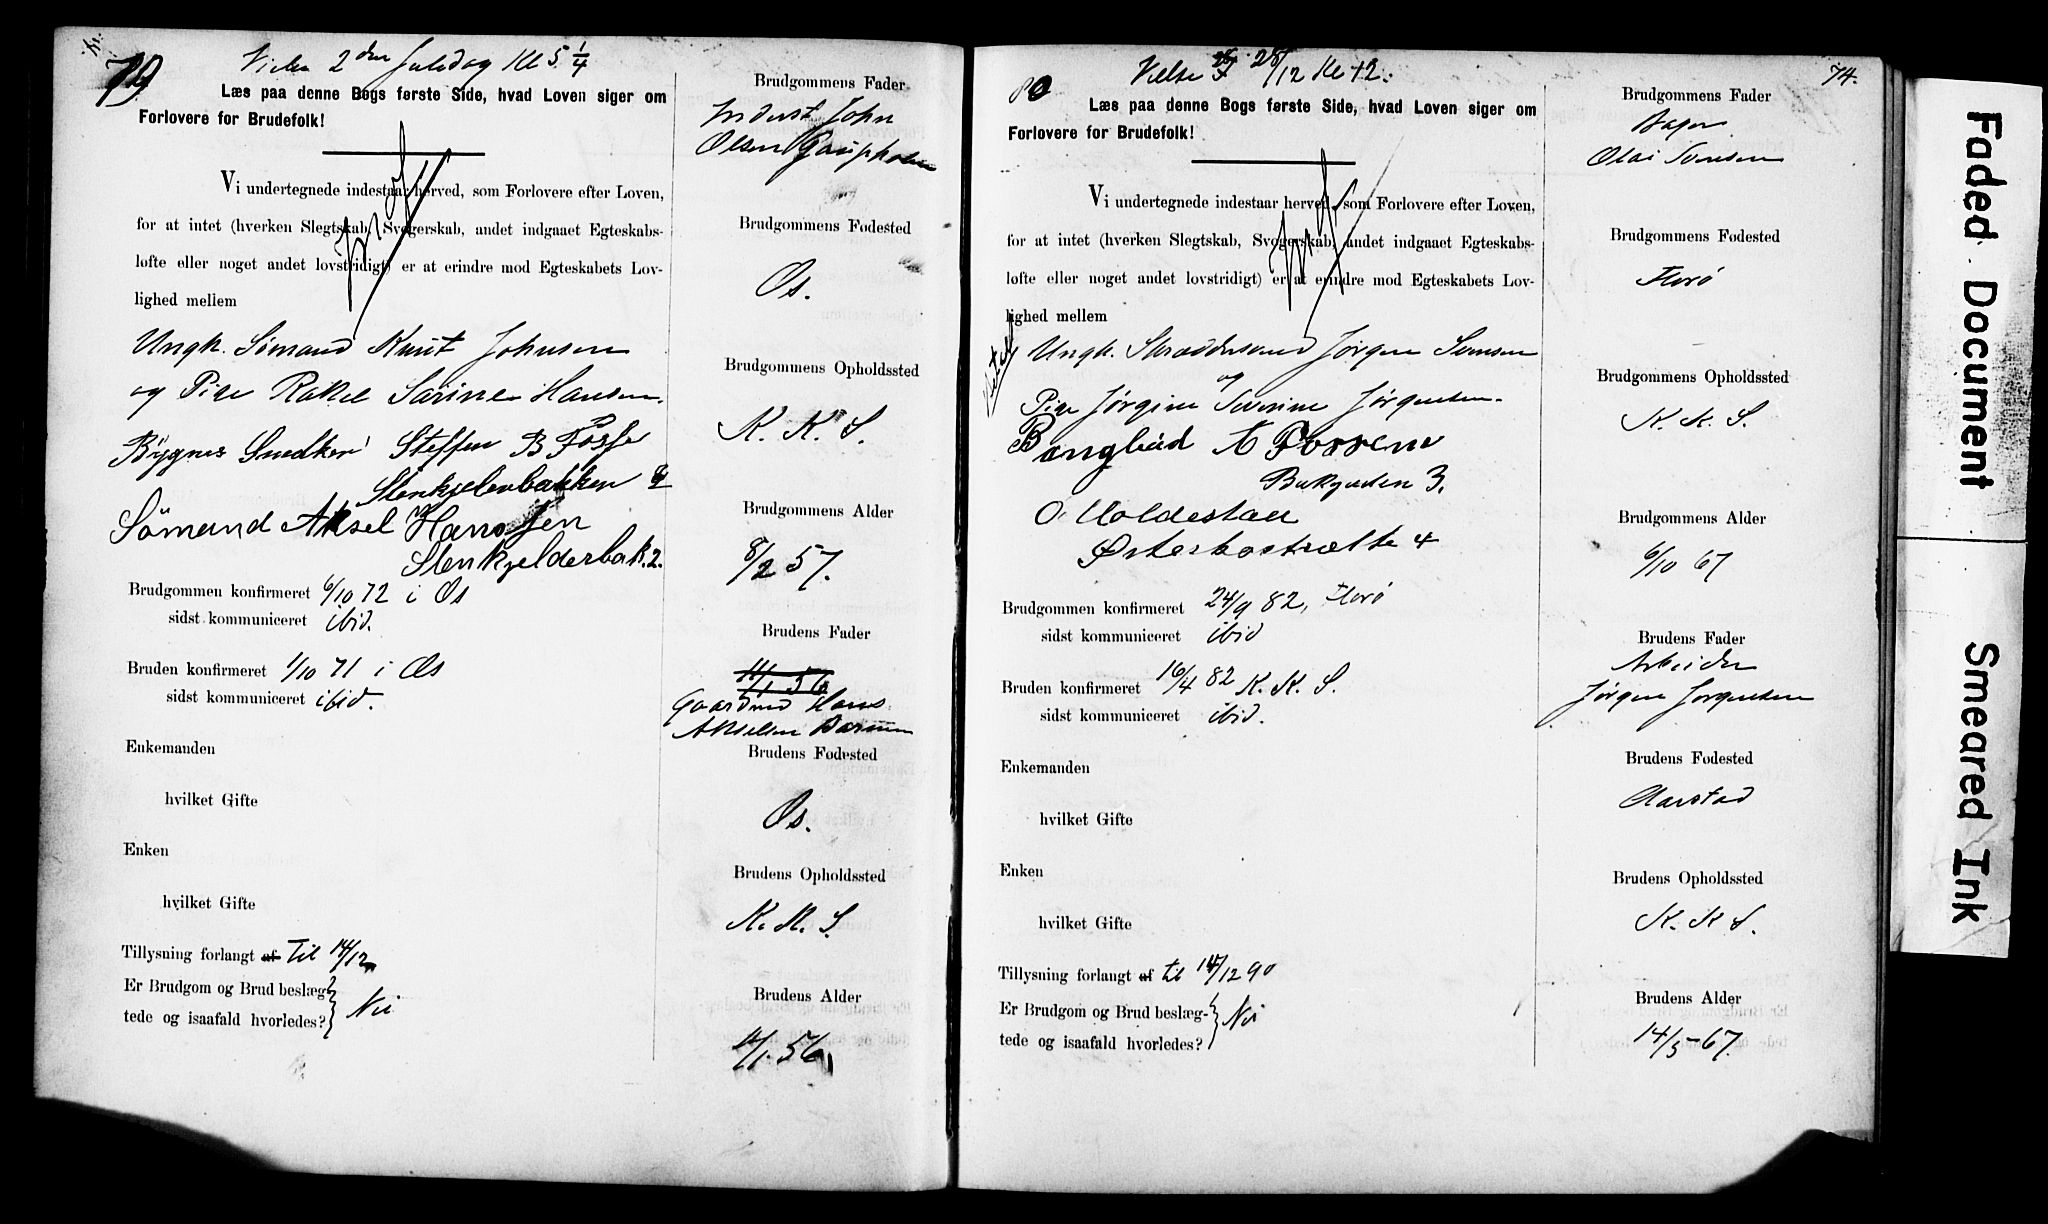 79 Vielse 2den Juledag Kl 5 1/4
Læs paa denne Bogs første Side, hvad Loven siger om
Forlovere for Brudefolk!
Vi undertegnede indestaar herved, som Forlovere efter Loven,
for at intet (hverken Slegtskab, Svogerskab, andet indgaaet Egteskabs-
løfte eller noget andet lovstridigt) er at erindre mod Egteskabets Lov-
lighed mellem
Ungk. Sømand Knut Johnsen
og Pige Rakel Sarine Hansen.
Bygnes Snedker Steffen B Fosse
Stenkjelerbakken
Sømand Aksel Hanssen
Stenkjelderbak. 2.
Brudgommen konfirmeret 6/10 72 i Os
sidst kommuniceret ibid.
Bruden konfirmeret 1/10 71 i Os
sidst kommuniceret ibid.
Enkemanden
hvilket Gifte
Enken
hvilket Gifte
Tillysning forlangt af til 14/12
Er Brudgom og Brud beslæg-
tede og isaafald hvorledes? Nei
Brudgommens Fader
Inderst John
Olsen Gaupholm
Brudgommens Fødested
Os.
Brudgommens Opholdssted
K. K. S.
Brudgommens Alder
8/2 57.
Brudens Fader
11/1 56
Gaardmd Hans
Akselsen
Brudens Fødested
Os.
Brudens Opholdssted
N. K. S.
Brudens Alder
11/1 56
80 Vielse 28/12 Kl 12.
74.
Læs paa denne Bogs første Side, hvad Loven siger om
Forlovere for Brudefolk!
Vi undertegnede indestaar herved, som Forlovere efter Loven,
for at intet (hverken Slegtskab, Svogerskab, andet indgaaet Egteskabs-
løfte eller noget andet lovstridigt) er at erindre mod Egteskabets Lov-
lighed mellem
Ungk. Skræddersvend Jørgen Svensen
og
Pige Jørgine Severine Jørgensen.
A Forren
Bakgaden 3.
O. Moldestad
Østerbostrætte 4
Brudgommen konfirmeret 24/9 82, Florø
sidst kommuniceret ibid
Bruden konfirmeret 16/4 82 K. K. S.
sidst kommuniceret ibid.
Enkemanden
hvilket Gifte
Enken
hvilket Gifte
Tillysning forlangt af til 14/12 90
Er Brudgom og Brud beslæg-
tede og isaafald hvorledes? Nei
Brudgommens Fader
Bager
Olai Svensen
Brudgommens Fødested
Florø
Brudgommens Opholdssted
K. K. S.
Brudgommens Alder
6/10 67
Brudens Fader
Arbeider
Jørgen Jørgensen
Brudens Fødested
Aarstad
Brudens Opholdssted
K. K S.
Brudens Alder
14/5 - 67.
Faded Document
Smeared Ink